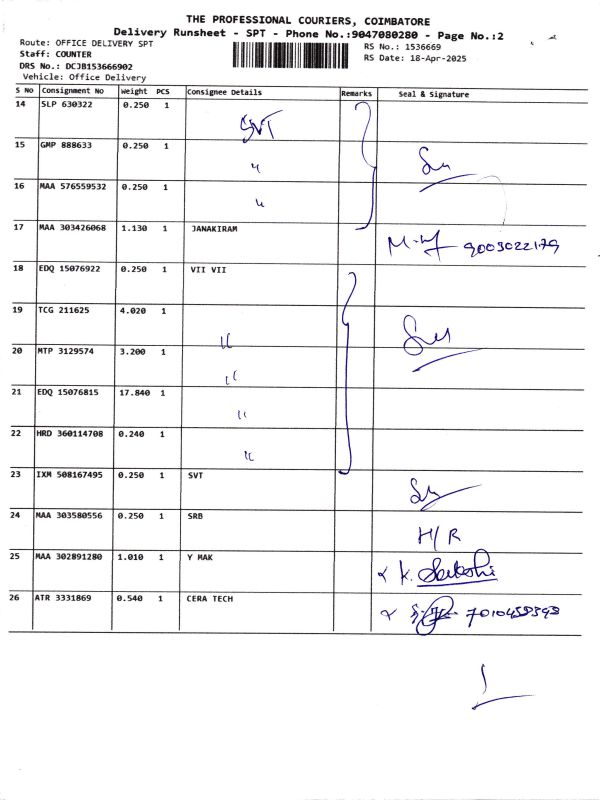 THE PROFESSIONAL COURIERS, COIMBATORE
Delivery Runsheet - SPT - Phone No.:9047080280 - Page No.:2
Route: OFFICE DELIVERY SPT
Staff: COUNTER
DRS No.: DCJB153666902
Vehicle: Office Delivery
RS No.: 1536669
RS Date: 18-Apr-2025
S No Consignment No Weight PCS Consignee Details Remarks Seal & Signature
14 SLP 630322 0.250 1 SVT
15 GMP 888633 0.250 1 "
16 MAA 576559532 0.250 1 "
17 MAA 303426068 1.130 1 JANAKIRAM 9003022179
18 EDQ 15076922 0.250 1 VII VII
19 TCG 211625 4.020 1 "
20 MTP 3129574 3.200 1 "
21 EDQ 15076815 17.840 1 "
22 HRD 360114708 0.240 1 "
23 IXM 508167495 0.250 1 SVT
24 MAA 303580556 0.250 1 SRB H/R
25 MAA 302891280 1.010 1 Y MAK K.
26 ATR 3331869 0.540 1 CERA TECH